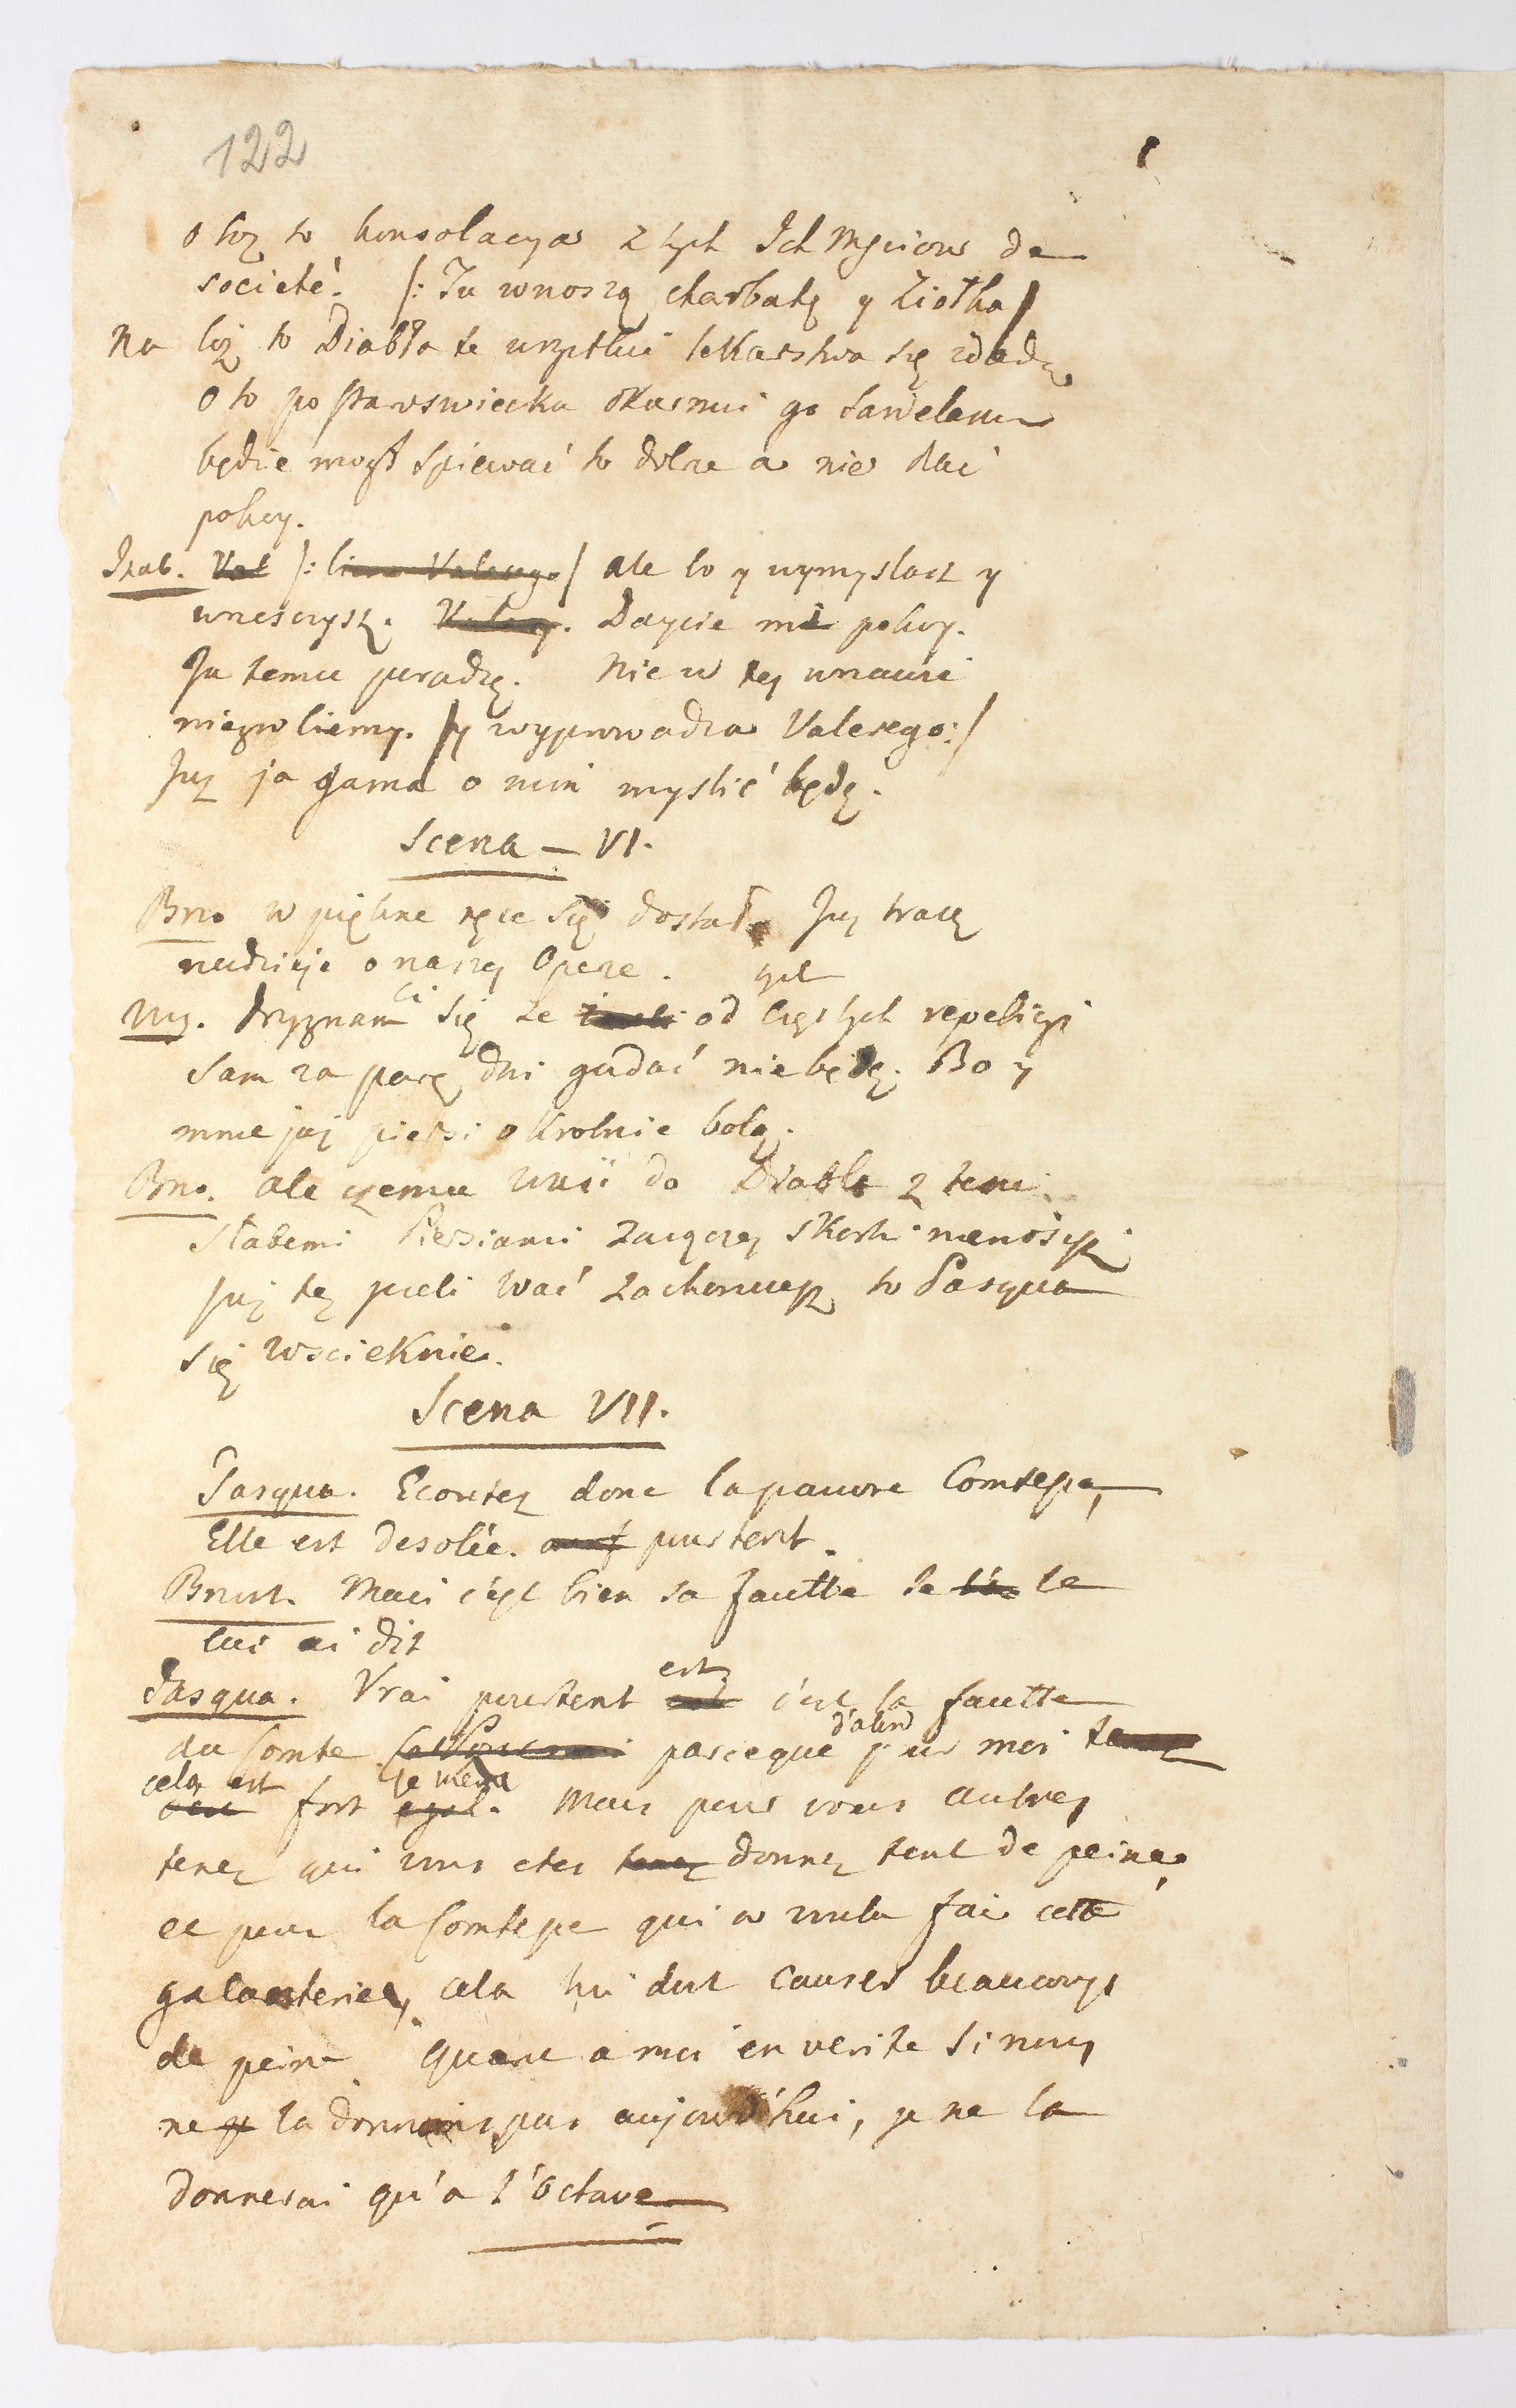 122
otoż to konsolacya z tych Ich Mściow de
societé. /: Tu wnoszą charbatę y ziołka /
Na coż to Diabła te wszytkie lekarstwa się zdadzą
Oto po staroswiecka okarmi go
będzie mogł spiewać to dobrze a nie dać
pokoy.
Izab. Val /: Valerego / ale to y wymyslasz y
wrzesczysz. Daycie mi pokoy.
Ja temu poradzę. Nic w tey
/ y wyprowadza Valerego :/
Juz ja sama o nim myslić będę.
Scena – VI.
Bru. w piękne ręce się dostał. Juz tracę
nadzieję o naszey Operze.
My. Pryznam ci się ze od tych częstych repeticyi
Sam za parę dni gadać nie będę. Bo y
mnie już piersi okrotnie bolą.
Bru. ale czemu do Diabła z temi
słabemi Piersiami
już zachorujesz to Pasqua
się wscieknie.
Scena VII.
Pasqua. Ecoutez donc la pauvre Comtesse,
Elle est desolée. pourtent.
Brut. Mais c'est bien sa fautte Je le
lui ai dit
Pasqua. Vrai pourtent est c'est la fautte
du Comte parceque d'abord pour moi
cela est fort egal. je meme Mais pour vous autres
tenez qui vous etes tenez donnez tent de peine,
et pour la Comtesse qui a voulu fair cette
galanterie, cela lui doit causer beaucoup
de peine. Quant a moi en verite Si nous
ne la donnons pas aujourd'hui, je ne la
donnerai qu'a l'Octave